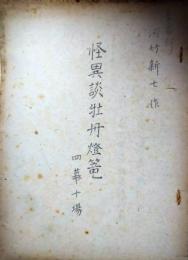 河竹新七作
怪異談牡丹燈籠
四幕十場